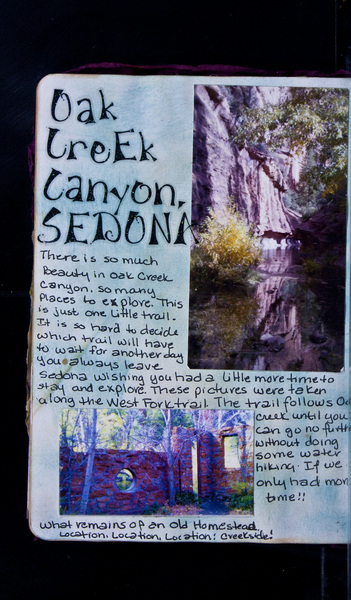 Oak
CreEk
Canyon,
SEDONA
There is so much
Beauty in Oak Creek
Canyon. so many
Places to explore. This
is just one little trail.
It is so hard to decide
which trail will have
to wait for another day
you always leave
Sedona wishing you had a little more time to
stay and explore. These pictures were taken
along the West Fork trail. The trail follows Oa
creek until you
can go no furth
without doing
some water
hiking. If we
only had mor
time!!
What remains of an old Homestead
Location, Location, Location! Creekside!